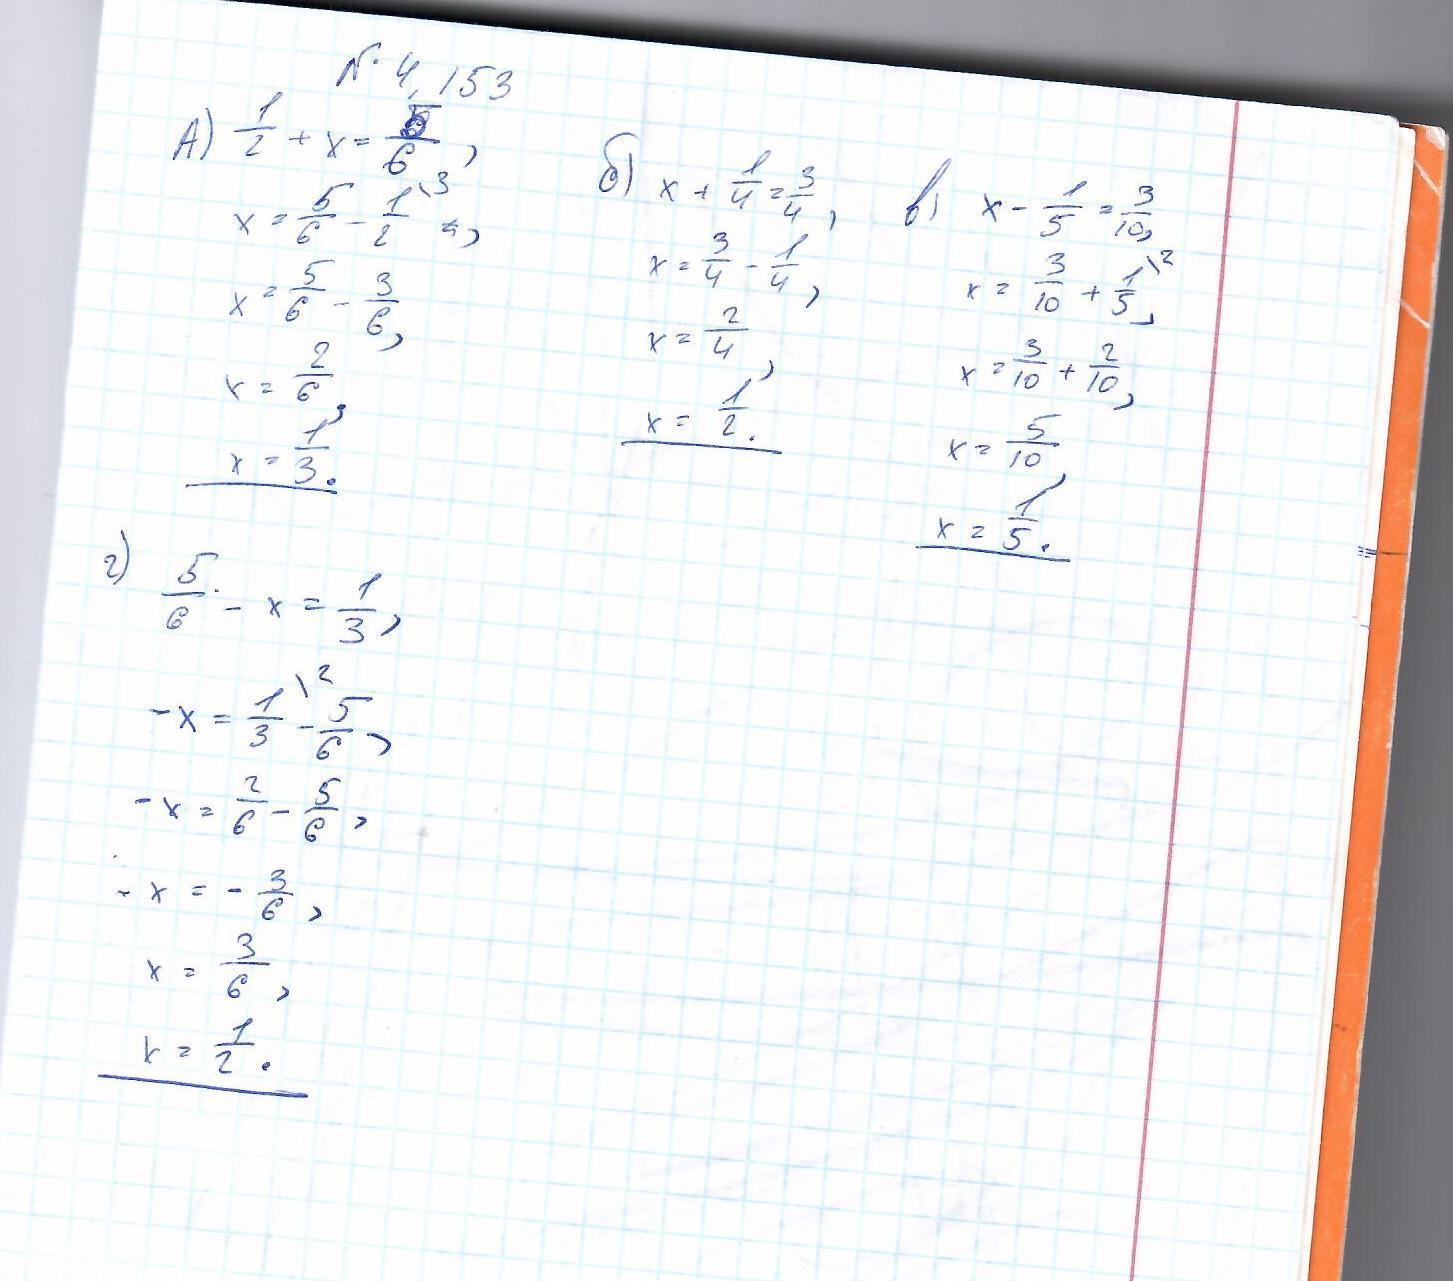 № 4,153
А) 1/2 + x = 5/6,
x = 5/6 - 1\3/2,
x = 5/6 - 3/6,
x = 2/6,
x = 1/3.
б) x + 1/4 = 3/4,
x = 3/4 - 1/4,
x = 2/4,
x = 1/2.
в) x - 1/5 = 3/10,
x = 3/10 + 1\2/5,
x = 3/10 + 2/10,
x = 5/10,
x = 1/5.
г) 5/6 - x = 1/3,
-x = 1\2/3 - 5/6,
-x = 2/6 - 5/6,
-x = -3/6,
x = 3/6,
x = 1/2.